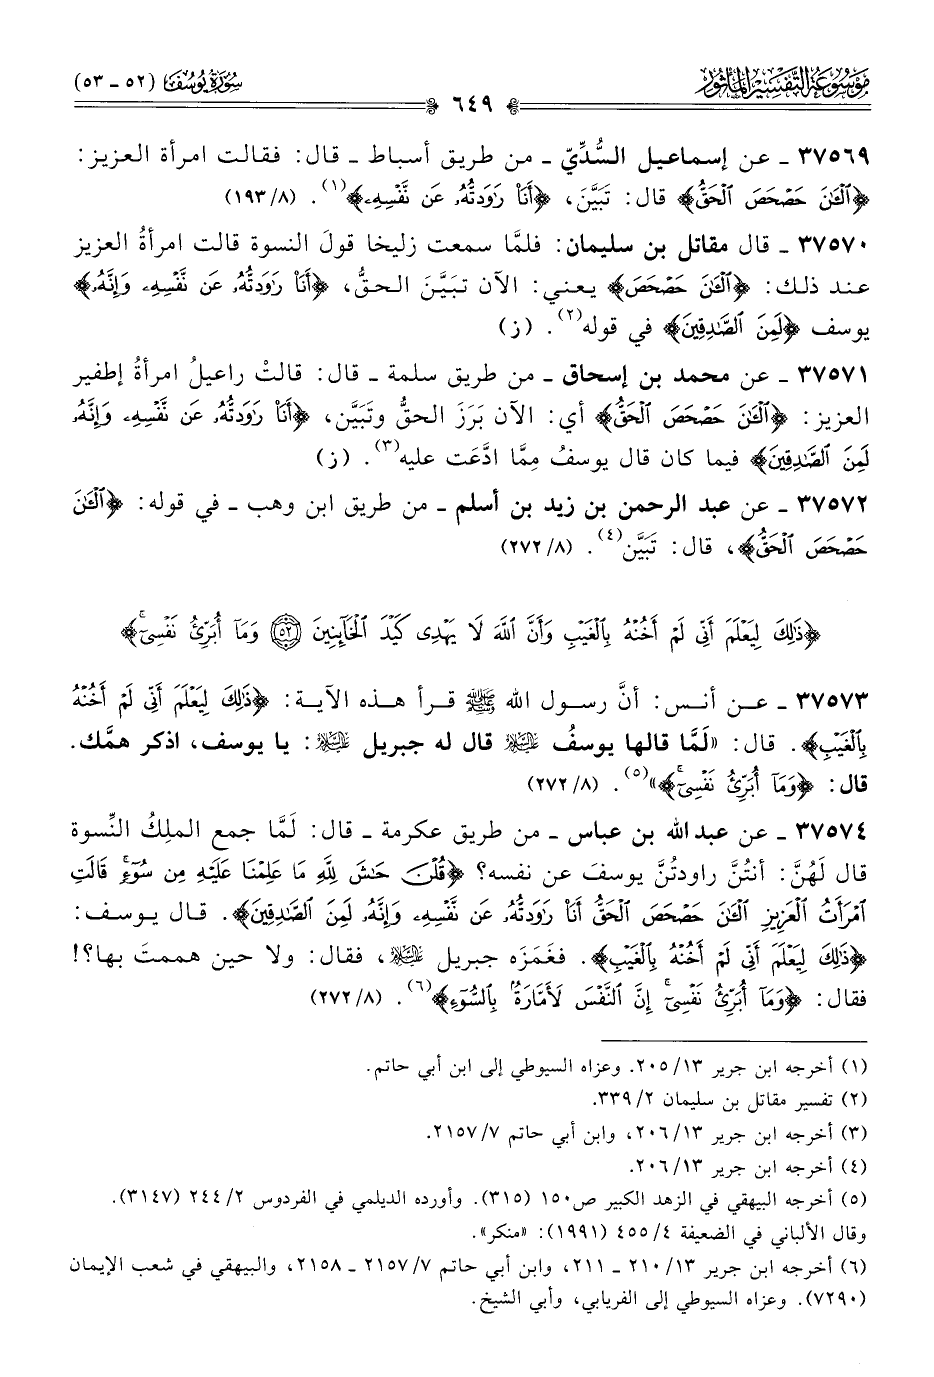 مَوْسُوعَةُ التَّفْسِيرِ المَأْثُورِ
سُورَةُ يُوسُفَ (٥٢ ـ ٥٣)
٦٤٩
٣٧٥٦٩ ـ عن إسماعيل السُّدِّيّ ـ من طريق أسباط ـ قال: فقالت امرأة العزيز:
﴿ٱلۡـَٰٔنَ حَصۡحَصَ ٱلۡحَقُّ﴾ قال: تبَيَّنَ، ﴿أَنَا۠ رَٰوَدتُّهُۥ عَن نَّفۡسِهِۦ﴾(١). (١٩٣/٨)
٣٧٥٧٠ ـ قال مقاتل بن سليمان: فلمَّا سمعت زليخا قولَ النسوة قالت امرأةُ العزيز
عند ذلك: ﴿ٱلۡـَٰٔنَ حَصۡحَصَ﴾ يعني: الآن تبَيَّنَ الحقُّ، ﴿أَنَا۠ رَٰوَدتُّهُۥ عَن نَّفۡسِهِۦ وَإِنَّهُۥ﴾
يوسف ﴿لَمِنَ ٱلصَّٰدِقِينَ﴾ في قوله(٢). (ز)
٣٧٥٧١ ـ عن محمد بن إسحاق ـ من طريق سلمة ـ قال: قالتْ راعيلُ امرأةُ إطفير
العزيز: ﴿ٱلۡـَٰٔنَ حَصۡحَصَ ٱلۡحَقُّ﴾ أي: الآن بَرَزَ الحقُّ وتبَيَّن، ﴿أَنَا۠ رَٰوَدتُّهُۥ عَن نَّفۡسِهِۦ وَإِنَّهُۥ
لَمِنَ ٱلصَّٰدِقِينَ﴾ فيما كان قال يوسفُ مِمَّا ادَّعَت عليه(٣). (ز)
٣٧٥٧٢ ـ عن عبد الرحمن بن زيد بن أسلم ـ من طريق ابن وهب ـ في قوله: ﴿ٱلۡـَٰٔنَ
حَصۡحَصَ ٱلۡحَقُّ﴾، قال: تَبَيَّن(٤). (٢٧٢/٨)
﴿ذَٰلِكَ لِيَعۡلَمَ أَنِّي لَمۡ أَخُنۡهُ بِٱلۡغَيۡبِ وَأَنَّ ٱللَّهَ لَا يَهۡدِي كَيۡدَ ٱلۡخَآئِنِينَ ٥٢ وَمَآ أُبَرِّئُ نَفۡسِيٓۚ﴾
٣٧٥٧٣ ـ عن أنس: أنَّ رسول الله ﷺ قرأ هذه الآية: ﴿ذَٰلِكَ لِيَعۡلَمَ أَنِّي لَمۡ أَخُنۡهُ
بِٱلۡغَيۡبِ﴾. قال: «لَمَّا قالها يوسفُ عليه السلام قال له جبريل عليه السلام: يا يوسف، اذكر همَّك.
قال: ﴿وَمَآ أُبَرِّئُ نَفۡسِيٓۚ﴾»(٥). (٢٧٢/٨)
٣٧٥٧٤ ـ عن عبد الله بن عباس ـ من طريق عكرمة ـ قال: لَمَّا جمع الملِكُ النِّسوة
قال لَهُنَّ: أنتُنَّ راودتُنَّ يوسفَ عن نفسه؟ ﴿قُلۡنَ حَٰشَ لِلَّهِ مَا عَلِمۡنَا عَلَيۡهِ مِن سُوٓءٖۚ قَالَتِ
ٱمۡرَأَتُ ٱلۡعَزِيزِ ٱلۡـَٰٔنَ حَصۡحَصَ ٱلۡحَقُّ أَنَا۠ رَٰوَدتُّهُۥ عَن نَّفۡسِهِۦ وَإِنَّهُۥ لَمِنَ ٱلصَّٰدِقِينَ﴾. قال يوسف:
﴿ذَٰلِكَ لِيَعۡلَمَ أَنِّي لَمۡ أَخُنۡهُ بِٱلۡغَيۡبِ﴾. فغَمَزَه جبريل عليه السلام، فقال: ولا حين هممتَ بها؟!
فقال: ﴿وَمَآ أُبَرِّئُ نَفۡسِيٓۚ إِنَّ ٱلنَّفۡسَ لَأَمَّارَةُۢ بِٱلسُّوٓءِ﴾(٦). (٢٧٢/٨)
(١) أخرجه ابن جرير ٢٠٥/١٣. وعزاه السيوطي إلى ابن أبي حاتم.
(٢) تفسير مقاتل بن سليمان ٣٣٩/٢.
(٣) أخرجه ابن جرير ٢٠٦/١٣، وابن أبي حاتم ٢١٥٧/٧.
(٤) أخرجه ابن جرير ٢٠٦/١٣.
(٥) أخرجه البيهقي في الزهد الكبير ص١٥٠ (٣١٥). وأورده الديلمي في الفردوس ٢٤٤/٢ (٣١٤٧).
وقال الألباني في الضعيفة ٤٥٥/٤ (١٩٩١): «منكر».
(٦) أخرجه ابن جرير ٢١٠/١٣ ـ ٢١١، وابن أبي حاتم ٢١٥٧/٧ ـ ٢١٥٨، والبيهقي في شعب الإيمان
(٧٢٩٠). وعزاه السيوطي إلى الفريابي، وأبي الشيخ.